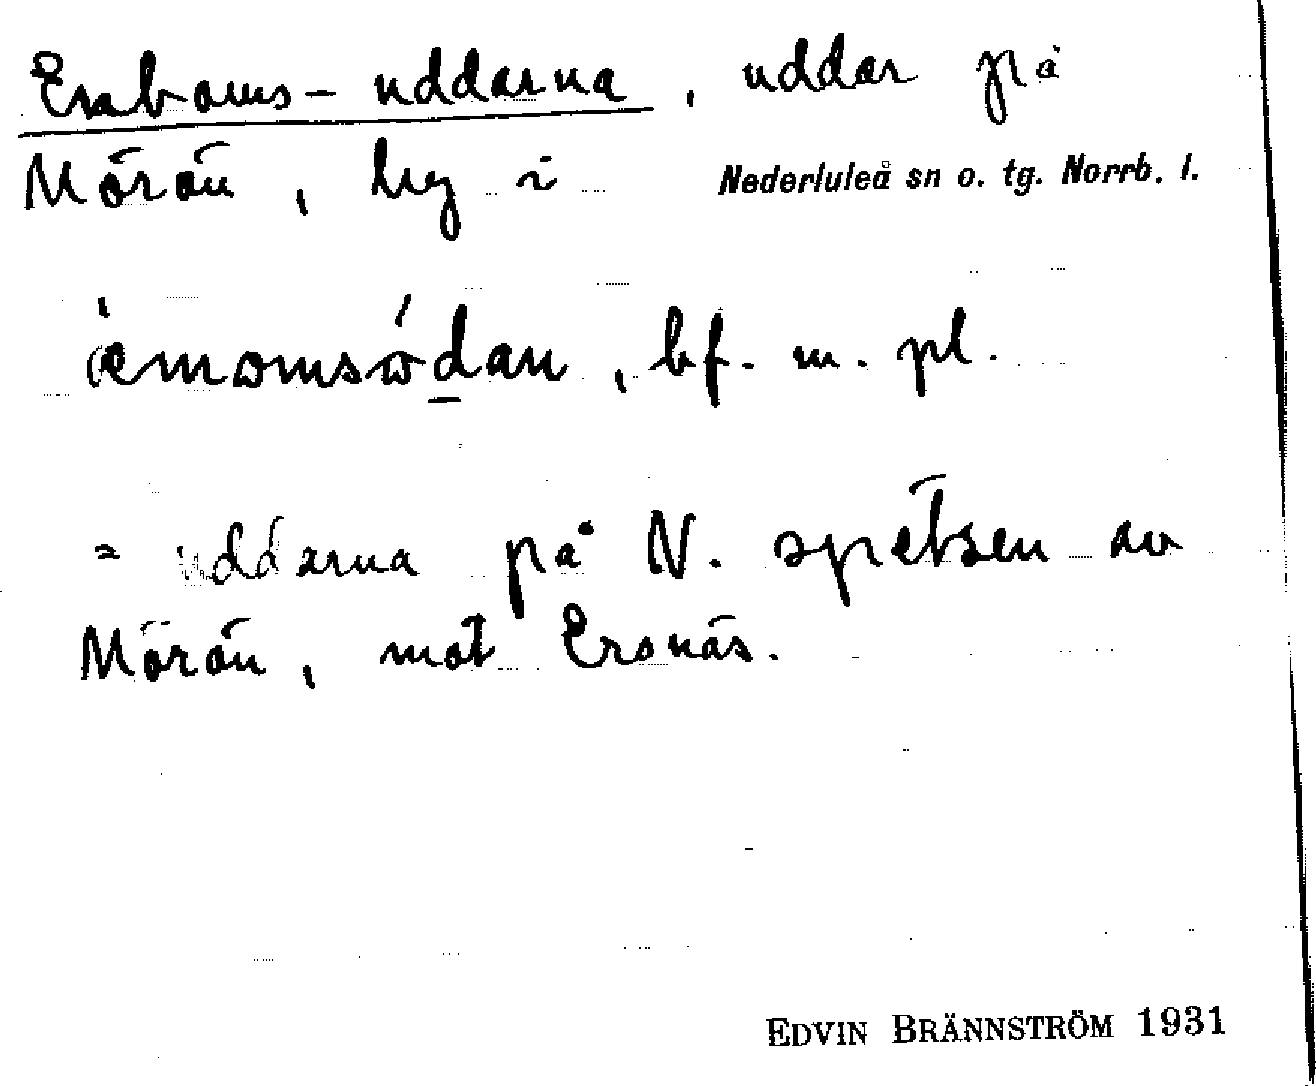 Enboms-uddarna, uddar på
Mörön, hög i Nederluleå sn o. tg. Norrb. l.
bf. m. pl.
= uddarna på N. spetsen av
Mörön, mot Ersnäs.
EDVIN BRÄNNSTRÖM 1931